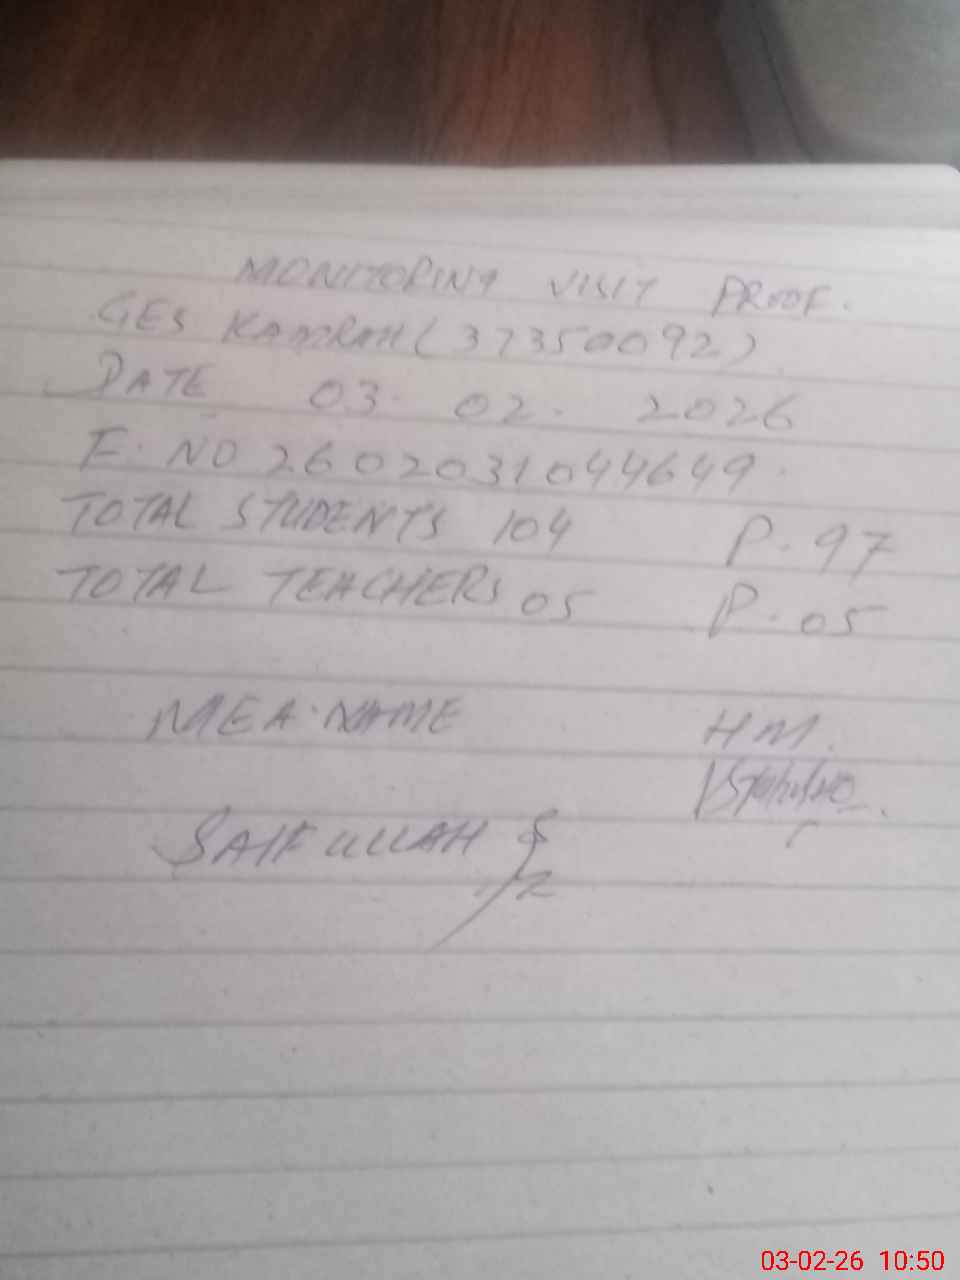 MONITORING VISIT PROOF.
GES KAMRAH (37350092)
DATE 03. 02. 2026
F. NO 2602031044649.
TOTAL STUDENTS 104 P. 97
TOTAL TEACHERS 05 P. 05
MEA. NAME HM.
SAIFULLAH
03-02-26 10:50